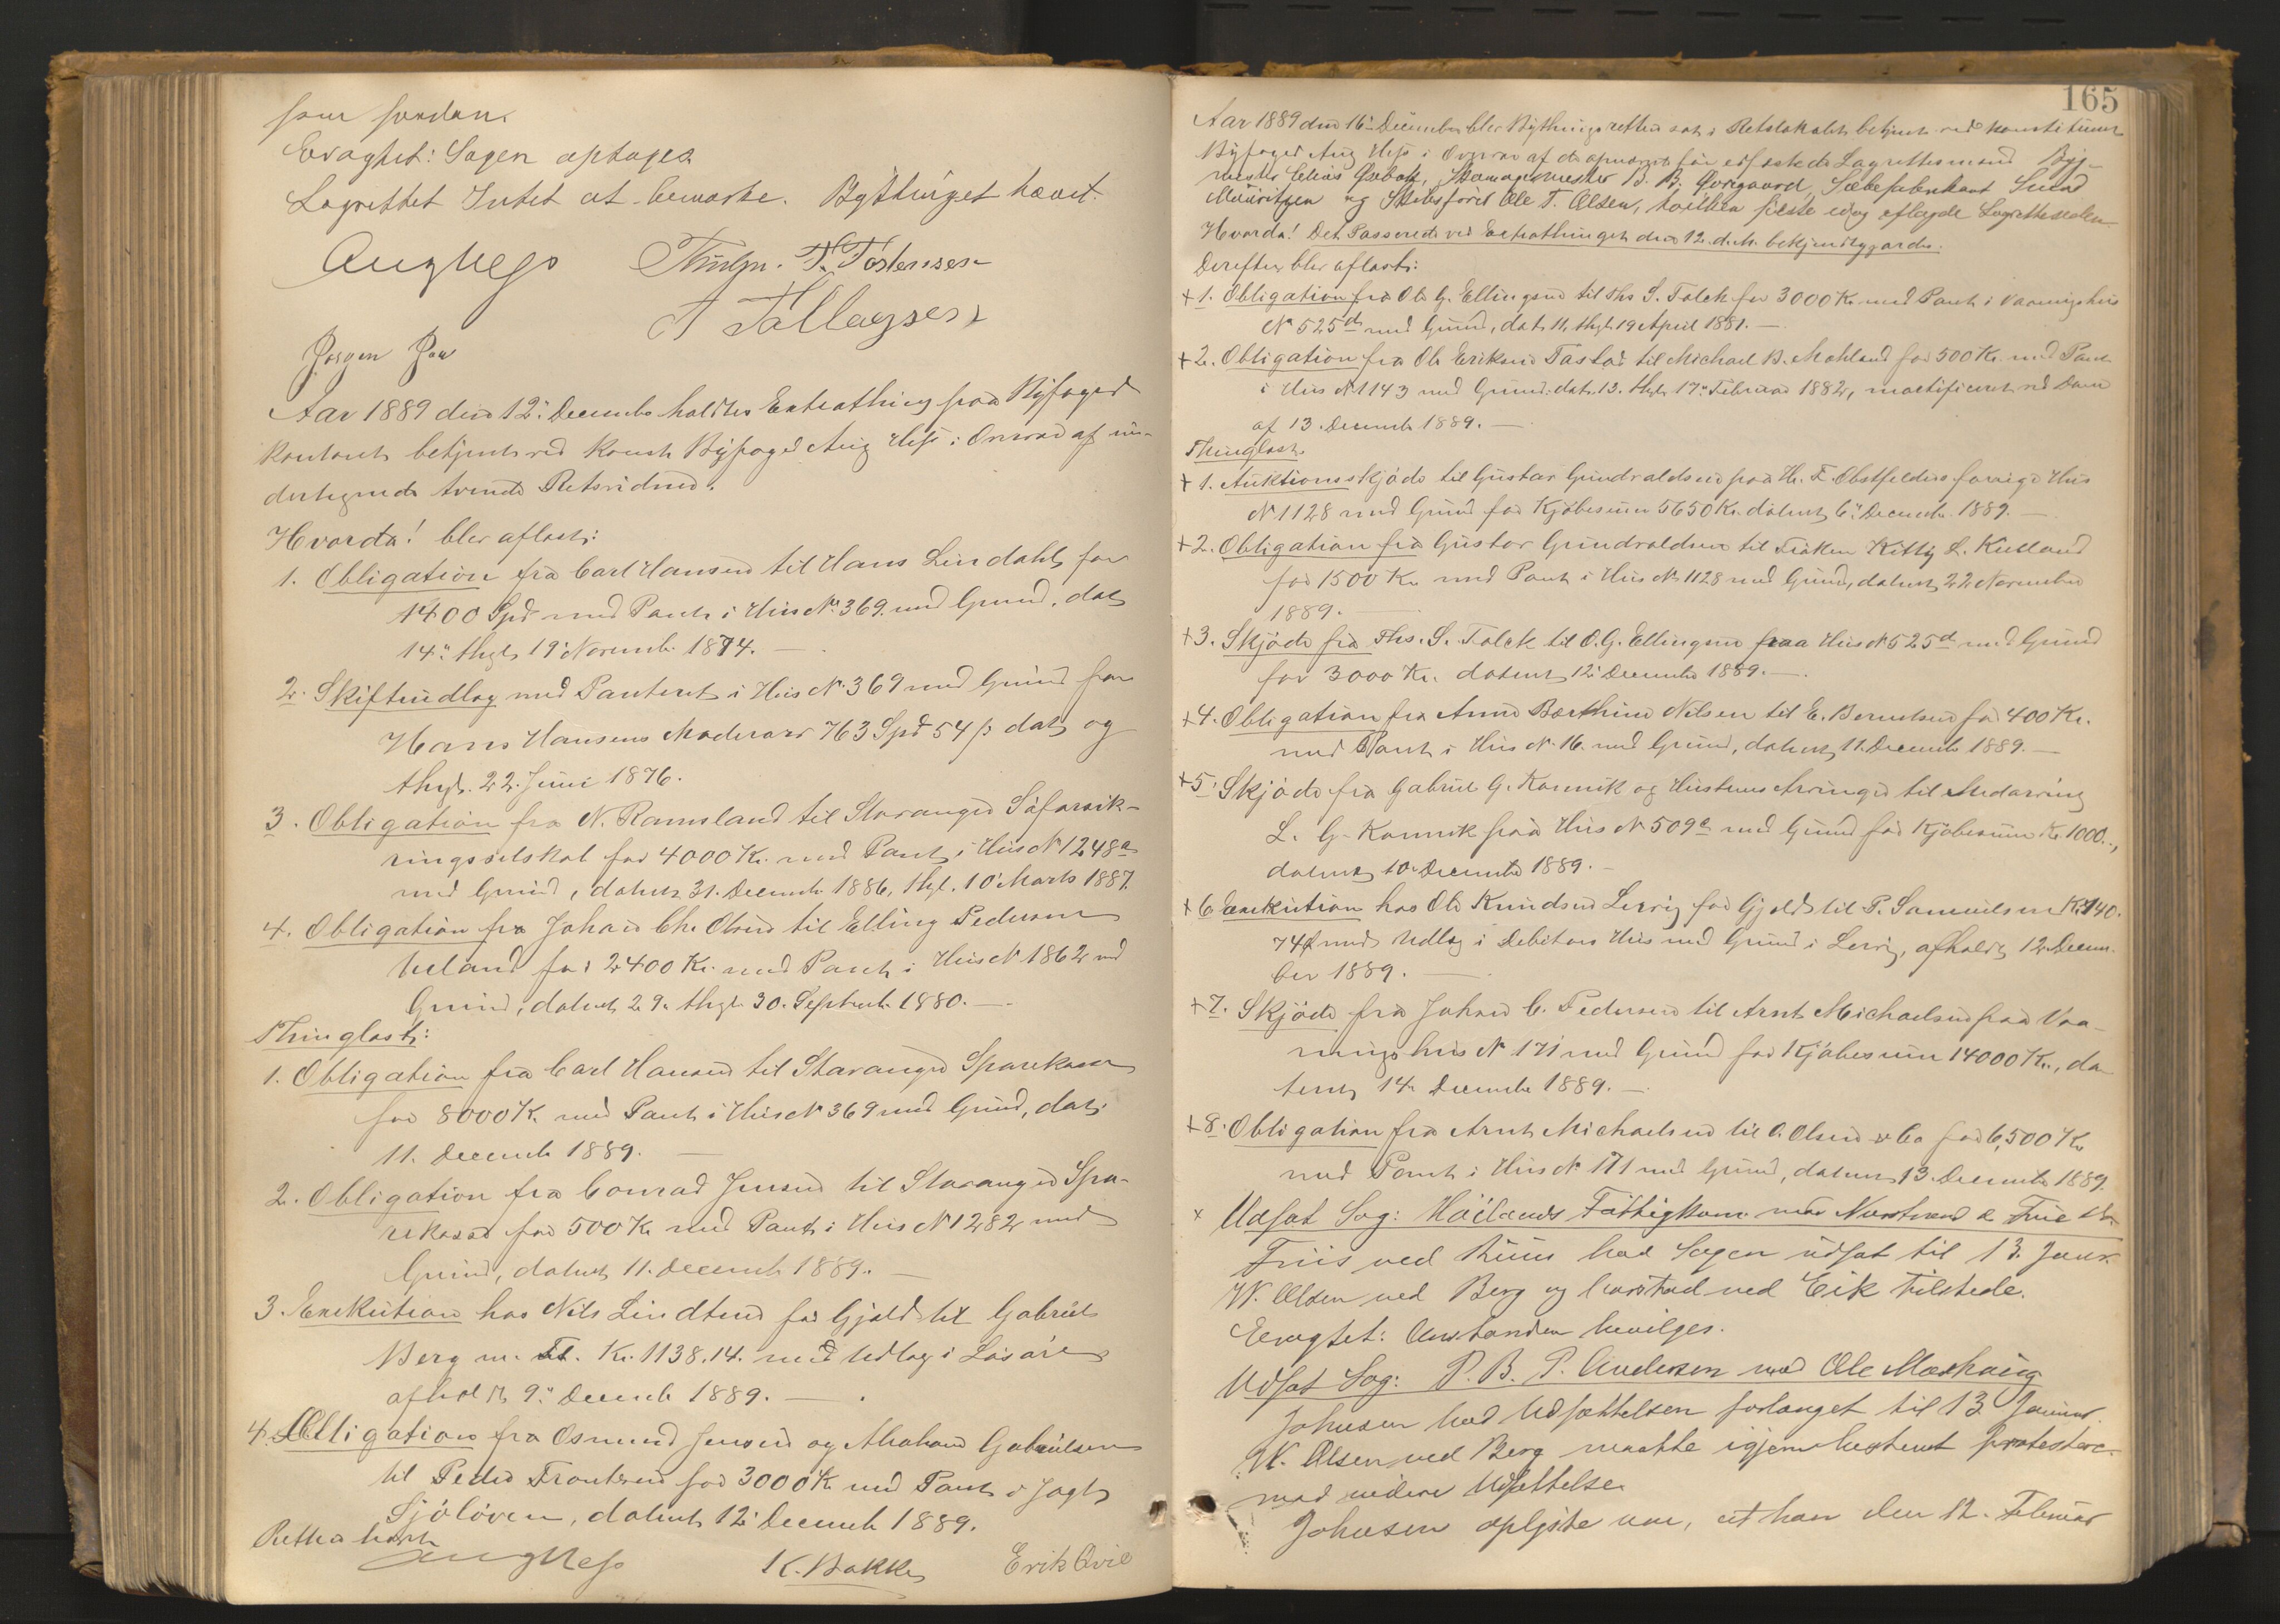 som sædan.
Eragtet: Sagen optages.
Lagrettet Intet at bemærke. Bythinget hævet.
Aug Hess
T. Tostensen
A Tallagsen
Jørgen
Aar 1889 den 12te December holdtes Extrathing paa Byfoged
kontoret betjent ved konst Byfoged Aug Hess i Overvær af un-
dertegnede tvende Retsvidner.
Hvorda! blev aflæst:
1. Obligation fra Carl Hansen til Hans Lindahl for
1400 Spd med Pant i Hus No 369 med Grund, dat
14de thgl. 19 Novemb. 1874. —
2. Skifteudlæg med Panteret i Hus No 369 med Grund for
Hans Hansens Moderarv 763 Spd 54 ß dat og
thgl. 22. Juni 1876.
3. Obligation fra N. Ramsland til Stavanger Söforsik-
ringsselskab for 4000 Kr. med Pant i Hus No 1248a
med Grund, dateret 31. Decemb 1886, thgl. 10 Marts 1887.
4. Obligation fra Johan Chr. Olsen til Elling Pedersen
Ueland for 2400 Kr. med Pant i Hus No 1862 med
Grund, dateret 29. thgl. 30. Septemb. 1880. —
Thinglæst:
1. Obligation fra Carl Hansen til Stavanger Sparekasse
for 8000 K. med Pant i Hus No 369 med Grund, dat.
11. Decemb 1889. —
2. Obligation fra Conrad Jensen til Stavanger Spa-
rekasse for 500 K med Pant i Hus No 1282 med
Grund, dateret 11. Decemb 1889. —
3. Exekution hos Nils Lindtner for Gjæld til Gabriel
Berg m. Fl. Kr. 1138.14. med Udlæg i Løsøre
afholdt 9de Decemb 1889. —
4. Obligation fra Osmund Jensen og Abraham Gabrielsen
til Peder Thorsen for 3000 K med Pant i Jagt
Sjöløven, dateret 12 Decemb 1889.
Retten hævet
Aug Hess K. Bakke Erik Qvie
165
Aar 1889 den 16de December blev Bythingsretten sat i Retslokalet betjent ved konstitueret
Byfoged Aug Hess i Overvær af de opnævnte før edfæstede Lagrettesmænd Byg-
mester Elias Qvbak, Skomagermester B. B. Qvregaard, Sæbefabrikant Svend
Mauritzen og Skibsförer Ole T. Olsen, hvilken sidste idag aflagde Lagretteseden.
Hvorda! Det Passerede ved Extrathinget den 12. d. M. bekjendtgjordes.
Derefter blev aflæst:
+ 1. Obligation fra O. G. Ellingsen til Ths S. Falck for 3000 K. med Pant i Vaaningshus
No 525d med Grund, dat 11, thgl. 19 April 1881. —
+ 2. Obligation fra Ole Eriksen Tastad til Michael B. Mæhland for 500 Kr. med Pant
i Hus No 1143 med Grund. dat. 13. thgl. 17de Februar 1882, mortificeret ved Dom
af 13. Decemb 1889. —
Thinglæst.
+ 1. Auktionsskjöde til Gustav Gundvaldsen paa H. F. Obstfelders forrige Hus
No 1128 med Grund for Kjöbesum 5650 Kr. dateret 6te Decemb. 1889. —
+ 2. Obligation fra Gustav Gundvaldsen til Fröken Kitty L. Kielland
for 1500 Kr. med Pant i Hus No 1128 med Grund, dateret 22 November
1889. —
+ 3. Skjöde fra Ths. S. Falck til O. G. Ellingsen paa Hus No 525d med Grund
for 3000 Kr. dateret 12te December 1889. —
+ 4. Obligation fra Anne Bærthine Nilsen til E. Berntsen for 400 Kr.
med Pant i Hus No 16. med Grund, dateret 11. Decemb 1889. —
+ 5. Skjöde fra Gabriel G. Kornnik og Hustrues Arvinger til Medarving
L. G. Kornnik paa Hus No 509a med Grund for Kjöbesum Kr. 1000.,
dateret 10. December 1889. —
+ 6. Exekution hos Ole Knudsen Lervig for Gjæld til P. Samuelsen Kr. 140.
74 Ø med Udlæg i Debitors Hus med Grund i Lervig, afholdt 12. Decem-
ber 1889. —
+ 7. Skjöde fra Johan C. Pedersen til Arnt Michaelsen paa Vaa-
ningshus No 171 med Grund for Kjöbesum 14000 Kr., da-
teret 14. Decembr 1889. —
+ 8. Obligation fra Arnt Michaelsen til O. Olsen & Co for 6,500 Kr.
med Pant i Hus No 171 med Grund, dateret 13. December 1889.
x Udsat Sag: Höilands Fattigkom. mod
Friis ved Ruus bad Sagen udsat til 13. Janr.
W. Olsen ved Berg og Aarstad ved Eik tilstede.
Eragtet: Anstanden bevilges.
Udsat Sag: P. B. P. Andersen mod Ole Mæhaug
Johnsen bad Udsættelsen forlænget til 13 Januar.
W. Olsen ved Berg maatte igjen bestemt protestere
mod videre Udsættelse.
Johnsen oplyste nu, at han den 12. Februar